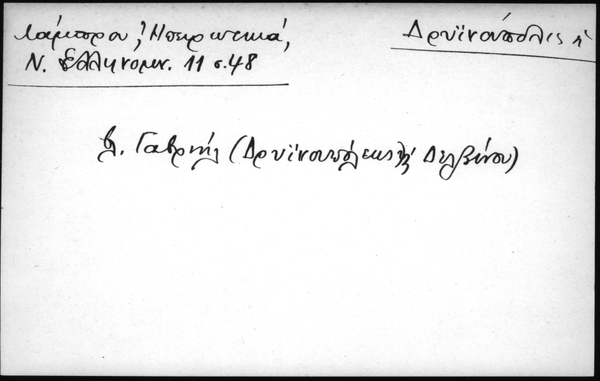 Λάμπρου, Ἠπειρωτικά,
Ν. Ἑλληνομν. 11 σ. 48
Δρυϊνούπολις ἡ
βλ. Γαβριήλ (Δρυϊνουπόλεως Δελβίνου)